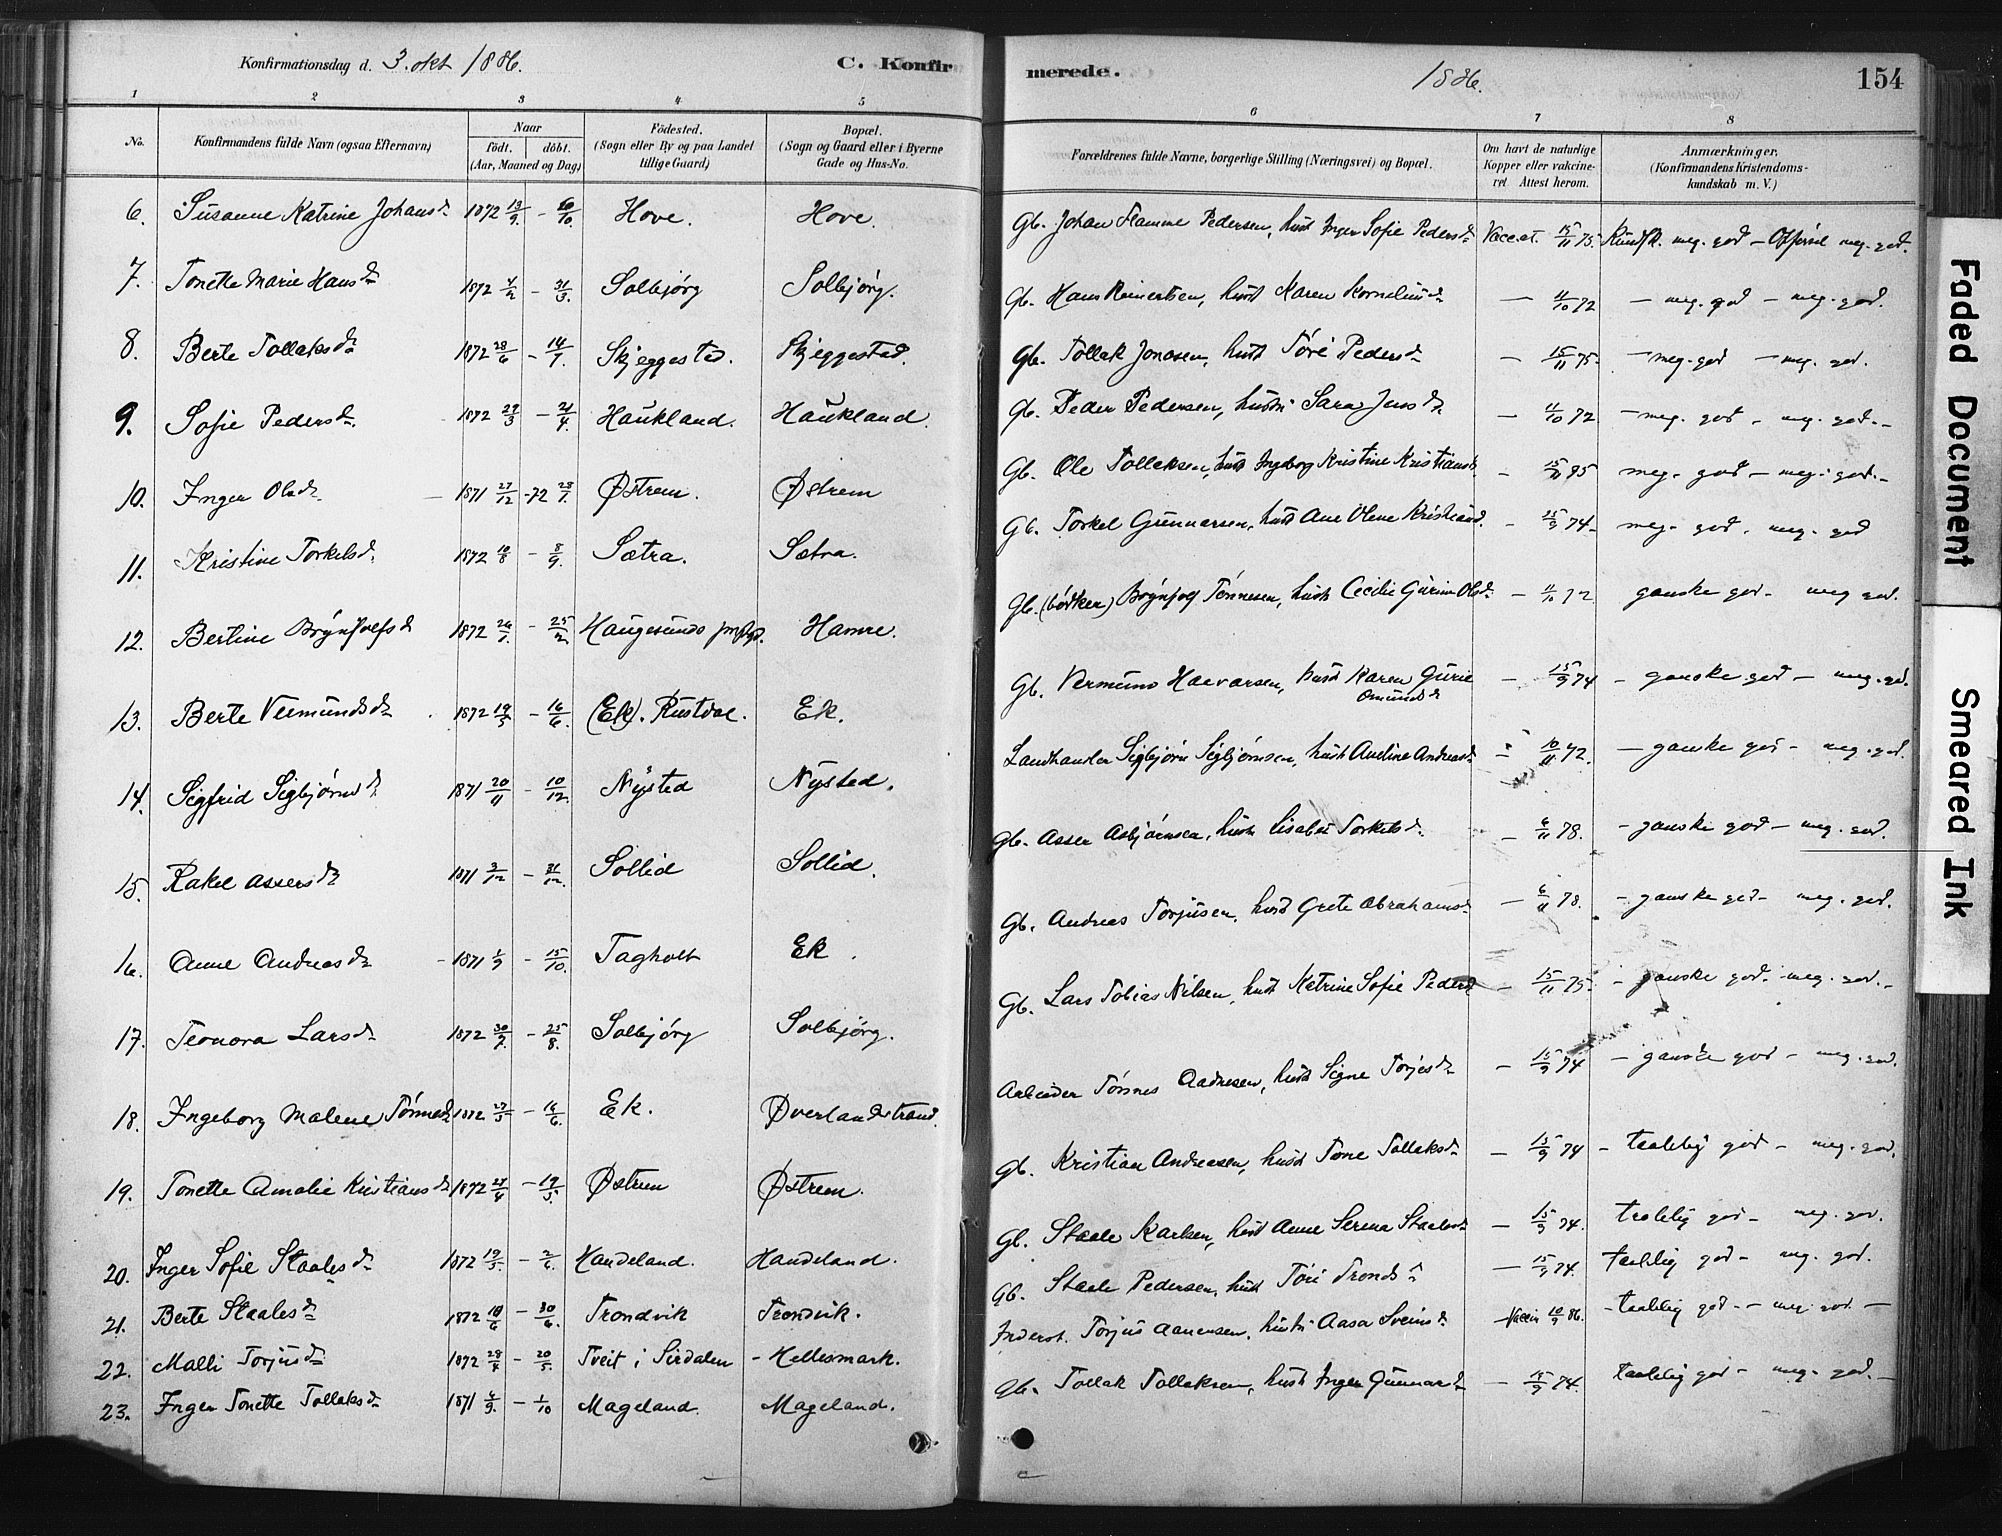 Konfirmationsdag d. 3. okt 1886. C. Konfir
merede. 1886. 154
1 2 3 4 5
6 7 8
No. Konfirmandens fulde Navn (ogsaa Efternavn) Naar født. døbt. (Aar, Maaned og Dag) Födested. (Sogn eller By og paa Landet tillige Gaard) Bopæl. (Sogn og Gaard eller i Byerne Gade og Hus-No.
Forældrenes fulde Navne, borgerlige Stilling (Næringsvei) og Bopæl. Om havt de naturlige Kopper eller vakcineret Attest herom. Anmærkninger. (Konfirmandens Kristendomskundskab m. V.)
6. Susanne Katrine Johansd. 1872 13/9 - /10. Hove. Hove. Gb. Johan Flamme Pedersen, hust Inger Sofie Pedersd. Vaccat. 15/11 75. Kundsk. meg. god - meg. god.
7. Tonette Marie Hansd. 1872 4/2 - 31/3. Solbjørg Solbjørg. Gb. Hans Reinertsen, hust Karen Korneliusd. - 11/10 72 - meg. god - meg. god.
8. Berte Tollaksd. 1872 28/6 - 14/7. Skjeggestad. Skjeggestad. Gb. Tollak Jonasen, hust Töri Pedersd. - 15/11 75. - meg. god - meg. god.
9. Sofie Pedersd. 1872 29/3 - 21/4. Haukland. Haukland. Gb. Peder Pedersen, hustr. Sara Jensd. - 11/10 72 - meg. god - meg. god.
10. Inger Olsd. - 1871 27/12 -72 28/1. Østrem. Østrem Gb. Ole Tollaksen, hust Ingeborg Kristine Kristiansd. - meg. god - meg. god.
11. Kristine Torkelsd. 1872 10/8 - 8/9. Sætra. Sætra. Gb. Torkel Gunnarsen, hust Ane Olene Kristiansd. - 15/9 74 - meg. god - meg. god
12. Bertine Brynjolfsd 1872 26/1. - 25/2 Haugesunds Hamre. Gb. (bödker) Brynjolf Tönnesen, hust Cecilie Gurine Olsd. - 11/10 72 ganske god - meg god.
13. Berte Vermundsd. 1872 19/5 - 16/6. (Ek). Rustdal. Ek. Gb. Vermund Haavarsen, hust Karen Gurie Omundsd - 15/9 74 - ganske god - meg. god.
14. Sigfrid Sigbjørnsd. 1871 20/11 - 10/12. Nysted Nysted. Landhandler Sigbjørn Sigbjørnsen, hust Aneline Andreasd. - 10/11 72. - ganske god - meg. god.
15. Rakel Assersd. 1871 3/12 - 31/12. Sollid Sollid. Gb. Asser Asbjørnsen, hust Lisabet Torkelsd. - 6/11 78. - ganske god - meg. god.
16. Anne Andreasd. - 1871 1/9 - 15/10. Tagholt Ek. Gb. Andreas Torjusen, hust Grete Abrahamsd. - 6/11 78. - ganske god - meg. god.
17. Teonora Larsd. 1872 30/7. - 25/8. Solbjörg Solbjörg. Gb. Lars Tobias Nilsen, hust Katrine Sofie Pedersd. - 15/11 75. - ganske god - meg. god.
18. Ingeborg Malene Tönnesd. 1872 27/5 - 16/6. Ek. Øverlandstrand. Arbeider Tönnes Aadnesen, hust Signe Torjesd. - 15/9 74 - ganske god - meg. god.
19. Tonette Amalie Kristiansd. 1872 27/4 - 19/5. Østrem Østrem. Gb. Kristian Andreasen, hust Tone Tollaksd. - 15/9 74 - taalelig god - meg. god.
20. Inger Sofie Staalesd. 1872 19/5. - 2/6. Handeland. Handeland. Gb. Staale Karlsen, hust Anne Serena Staalesd. - 15/9 74. taalelig god - meg. god.
21. Berte Staalesd. 1872 18/6 - 30/6. Trondvik Trondvik. Gb. Staale Pedersen, hust Töri Trondsd - 15/9 74. taalelig god - meg. god.
22. Malli Torjusd. 1872 28/4 - 20/5. Tveit i Sirdalen - Hellesmark. Inderst. Torjus Aanensen, hustr Aasa Sveinsd. - Vaccin 10/9 86. - taalelig god - meg. god -
23. Inger Tonette Tollaksd. 1871 6/9. - 1/10 Mageland. Mageland. Gb. Tollak Tollaksen, hust Inger Gunnarsd. - 15/9 74. taalelig god - meg. god. -
Faded Document
Smeared Ink